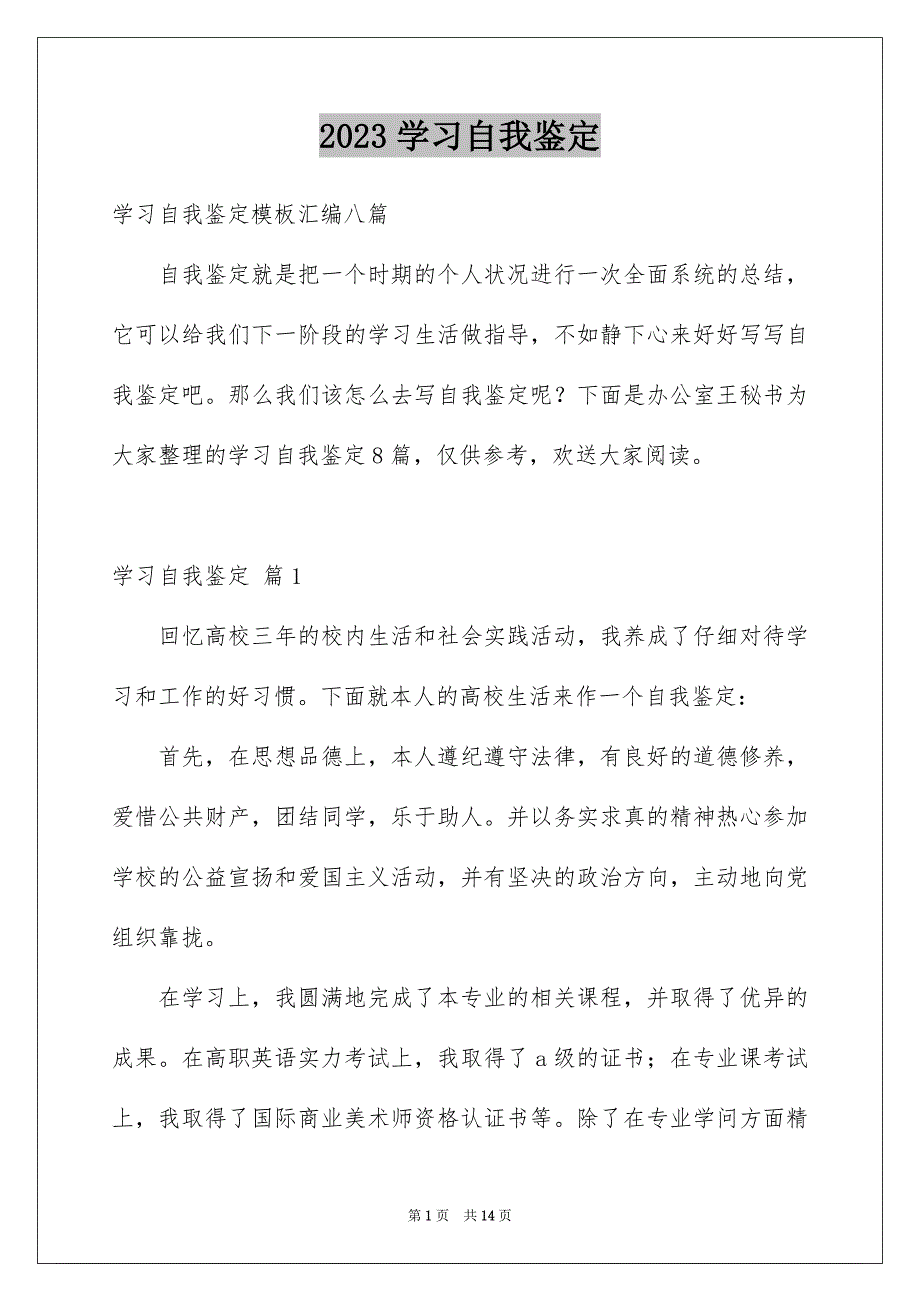 2023学习自我鉴定
学习自我鉴定模板汇编八篇
自我鉴定就是把一个时期的个人状况进行一次全面系统的总结，
它可以给我们下一阶段的学习生活做指导，不如静下心来好好写写自
我鉴定吧。那么我们该怎么去写自我鉴定呢？下面是办公室王秘书为
大家整理的学习自我鉴定8篇，仅供参考，欢送大家阅读。
学习自我鉴定 篇1
回忆高校三年的校内生活和社会实践活动，我养成了仔细对待学
习和工作的好习惯。下面就本人的高校生活来作一个自我鉴定：
首先，在思想品德上，本人遵纪遵守法律，有良好的道德修养，
爱惜公共财产，团结同学，乐于助人。并以务实求真的精神热心参加
学校的公益宣扬和爱国主义活动，并有坚决的政治方向，主动地向党
组织靠拢。
在学习上，我圆满地完成了本专业的相关课程，并取得了优异的
成果。在高职英语实力考试上，我取得了a级的证书；在专业课考试
上，我取得了国际商业美术师资格认证书等。除了在专业学问方面精
第1页 共14页